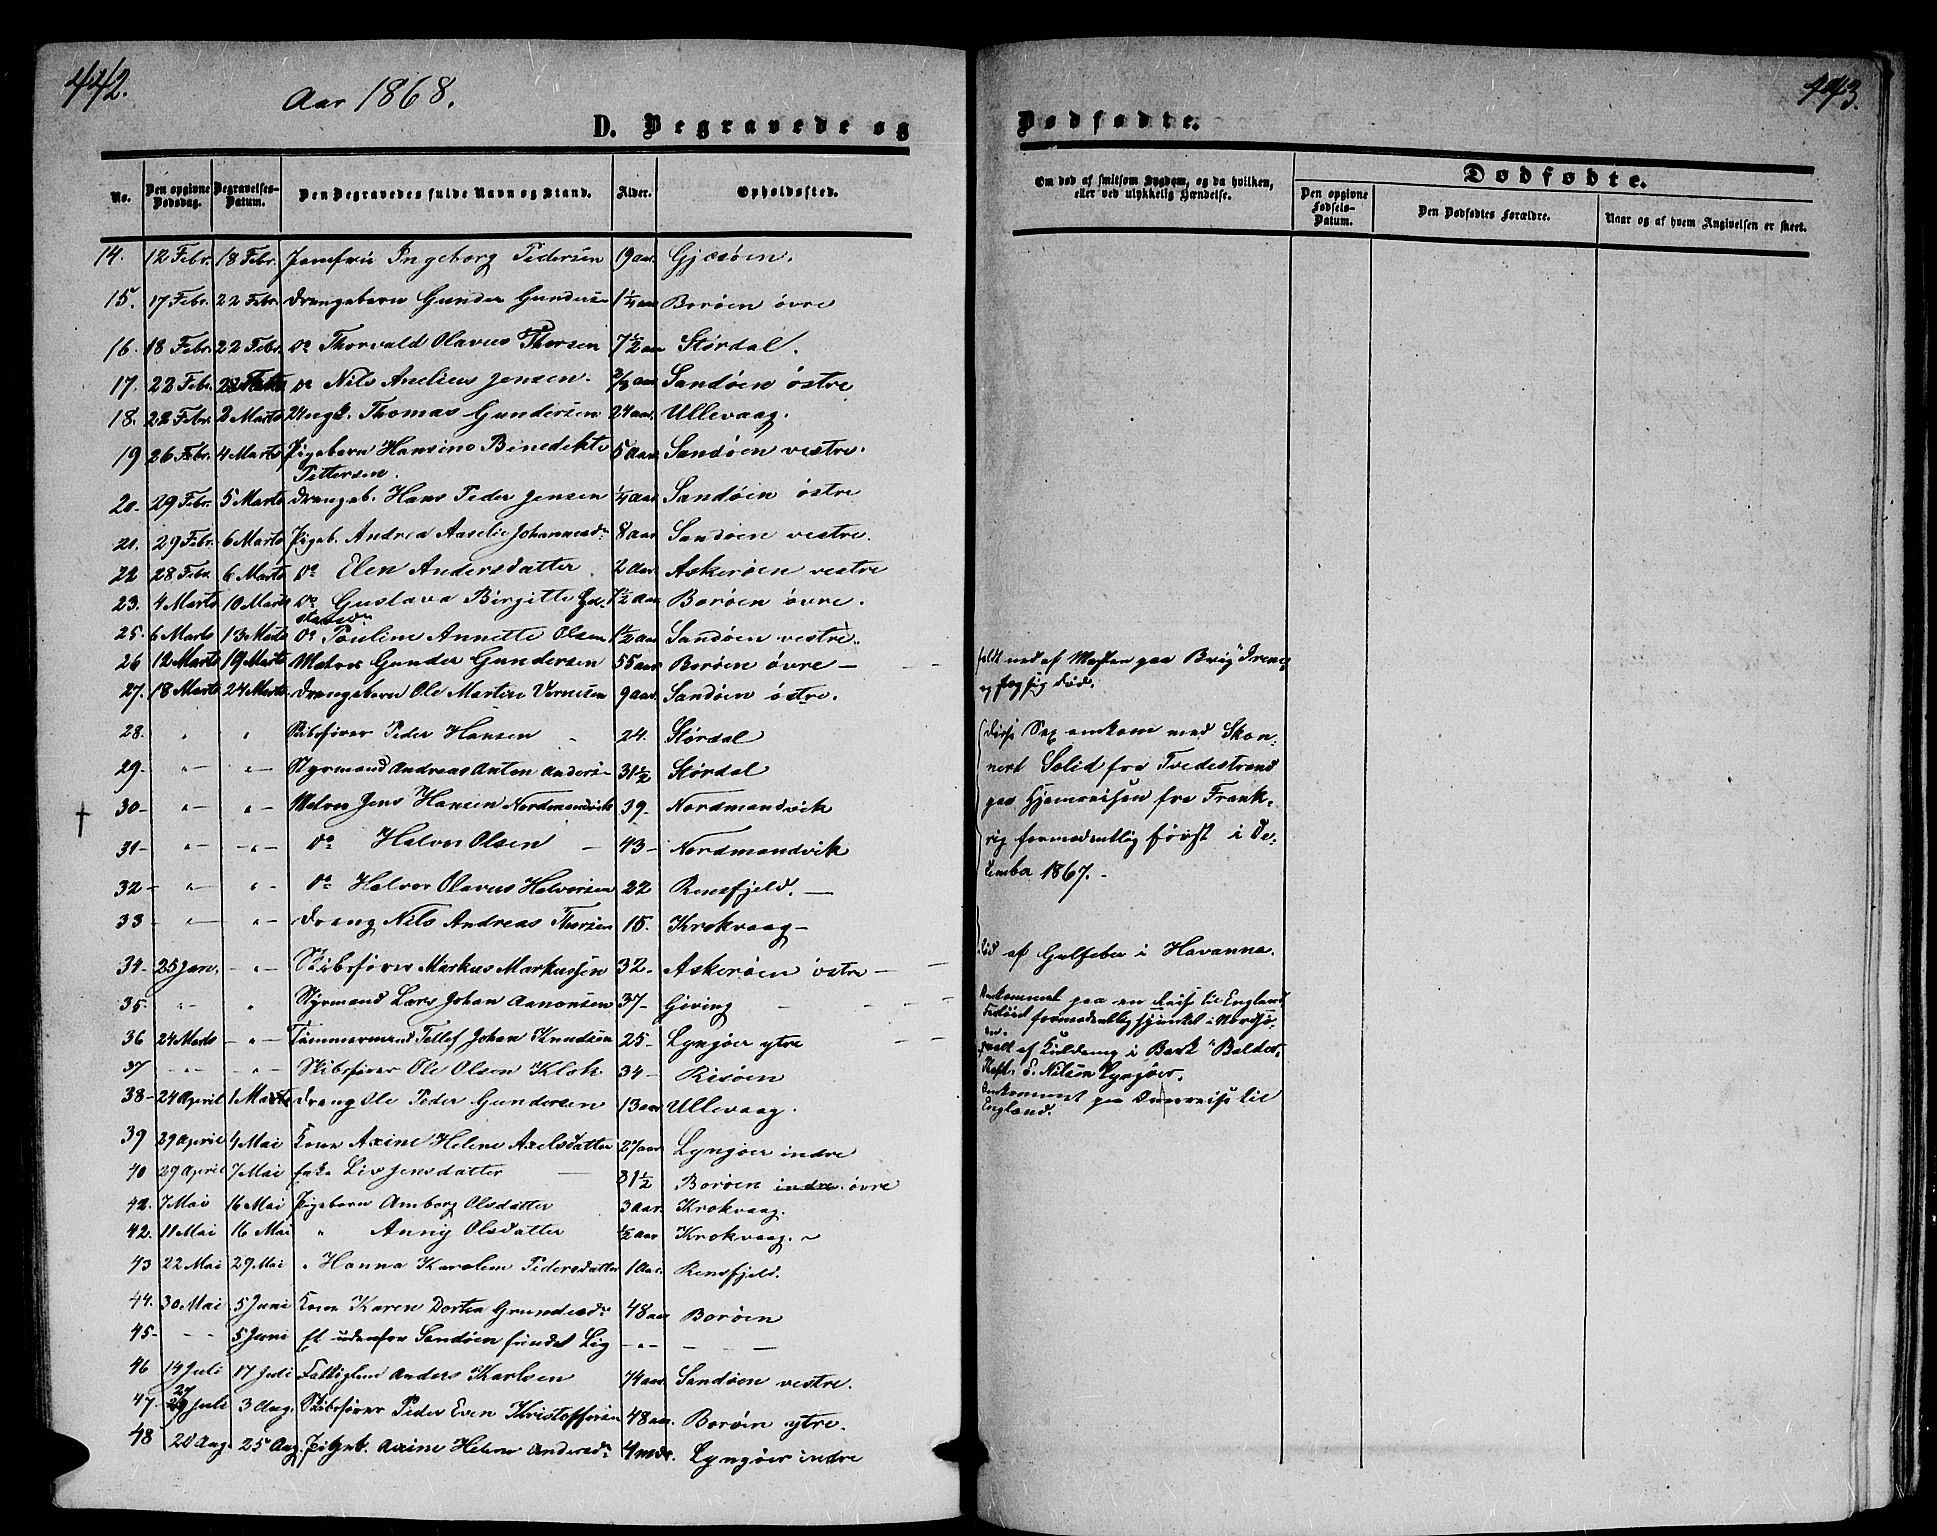 442.
Aar 1868.
D. Begravede og
No. Den opgivne Dødsdag. Begravelses-Datum. Den Begravedes fulde Navn og Stand. Alder. Opholdssted.
14. 12 Febr. 18 Febr. Jomfru Ingeborg Pedersen 19 aar. Gjæsøen.
15. 17 Febr. 22 Febr. Drengebarn Gunder Gunderse 1 1/4 aar Borøen övre
16. 18 Febr. 22 Febr. Do Thorvald Olavus Thorsen 7 1/2 aar Størdal.
17. 22 Febr. Do Nils Anelius Jensen. aar Sandøen östre
18. 22 Febr. 2 Marts Ungk. Thomas Gundersen 24 aar. Ullevaag.
19 26 Febr. 4 Marts Pigebarn Hansine Benedikte 5 aar Sandøen vestre.
Pettersen.
20. 29 Febr. 5 Marts Drengeb. Hans Peder Jensen 1/4 aar. Sandøen östre
21. 29 Febr. 6 Marts Pigeb. Andrea Aaselie Johannesdr 8 aar Sandøen vestre.
22 28 Febr. 6 Marts Do Elen Andersdatter 2 aar. Askerøen vestre
23. 4 Marts 10 Marts Do Gustava Birgitte Gu- 1 1/2 aar Borøen övre.
stavsdr
25. 6 Marts 13 Marts Do Pouline Annette Olsen 1 1/2 aar Sandøen vestre.
26 12 Marts 19 Marts Matros Gunder Gundersen 55 aar Borøen övre —
27. 18 Marts 24 Marts. Drengebarn Ole Martin 9 aar. Sandøen östre.
28. " " Skibsfører Peder Hansen 24. Størdal
29. " " Styrmand Andreas Anton Anders 31 1/2 Størdal
30 — " " Matros Jens Hansen Nordmandvik 39. Nordmandvik
31 — " " Do Halvor Olsen — 43 — Nordmandvik
32 — " " Do Halvor Olavus Halvorsen 22 Rensfjeld. —
33 — " " Dreng Nils Andreas Thorsen 15. Krokvaag —
34 — 25 Jan. — " — Skibsfører Markus Markussen 32. Askerøen östre —
35. " " Styrmand Lars Johan Aanonsen 37 — Gjøving —
36 24 Marts — " — Tømmermand Tellef Johan Knudsen 25 — Lyngøer ytre
37 " " Skibsfører Ole Olsen Klok 34 — Risøen
38 — 24 April 1 Dreng Ole Peder Gundersen 13 aar Ullevaag.
39 29 April 4 Mai Kone Axine Helene Axelsdatter 27 aar. Lyngøer indre
40 29 April 7 Mai Enke Liv Jensdatter 81 1/2 Borøen indre övre
42. 7 Mai 16 Mai Pigebarn Amborg Olsdatter 3 aar. Krokvaag.
42. 11 Mai 16 Mai " Anny Olsdatter 1/2 aar Krokvaag.
43 22 Mai 29 Mai " Hanna Karoline Pedersdatter 1 aar. Rensfjeld.
44. 30 Mai 5 Juni Kone Karen Dortea Grundesdr 48 aar Borøen
45 — — 5 Juni Et udenfor Sandøen fundet Lig — " — —
46 14 Juli 17 Juli Fattiglem Anders Karlsen 74 aar. Sandøen vestre.
47. 27 Juli 3 Aug. Skibsfører Peder Even Kristoffersen 48 aar. Borøen ytre.
48 20 Aug. 25 Aug. Axine Helene Andersdr 4 mdr. Lyngøer indre
443.
Dødfødte.
Om død af smitsom Sygdom, og da hvilken, eller ved ulykkelig Hændelse.
Dødfødte.
Den opgivne Fødsels-Datum. Den Dødfødtes Forældre. Naar og af hvem Angivelsen er skeet.
faldt ned af Masten paa Brig "Irene
og slog sig død.
disse Sex omkom med Skon-
nert Solid fra Tvedestrand
paa Hjemreisen fra Frank-
rig formodentlig først i De-
cember 1867. —
Død af Gulfeber i Havanna.
Omkommet paa en Reise til England
formodentlig sjunket i Nordsø-
en.
af Kuldseng i Bark "Balder,
Kapt. E. Nilsen Lyngøer.
Omkommet paa Reise til
England.